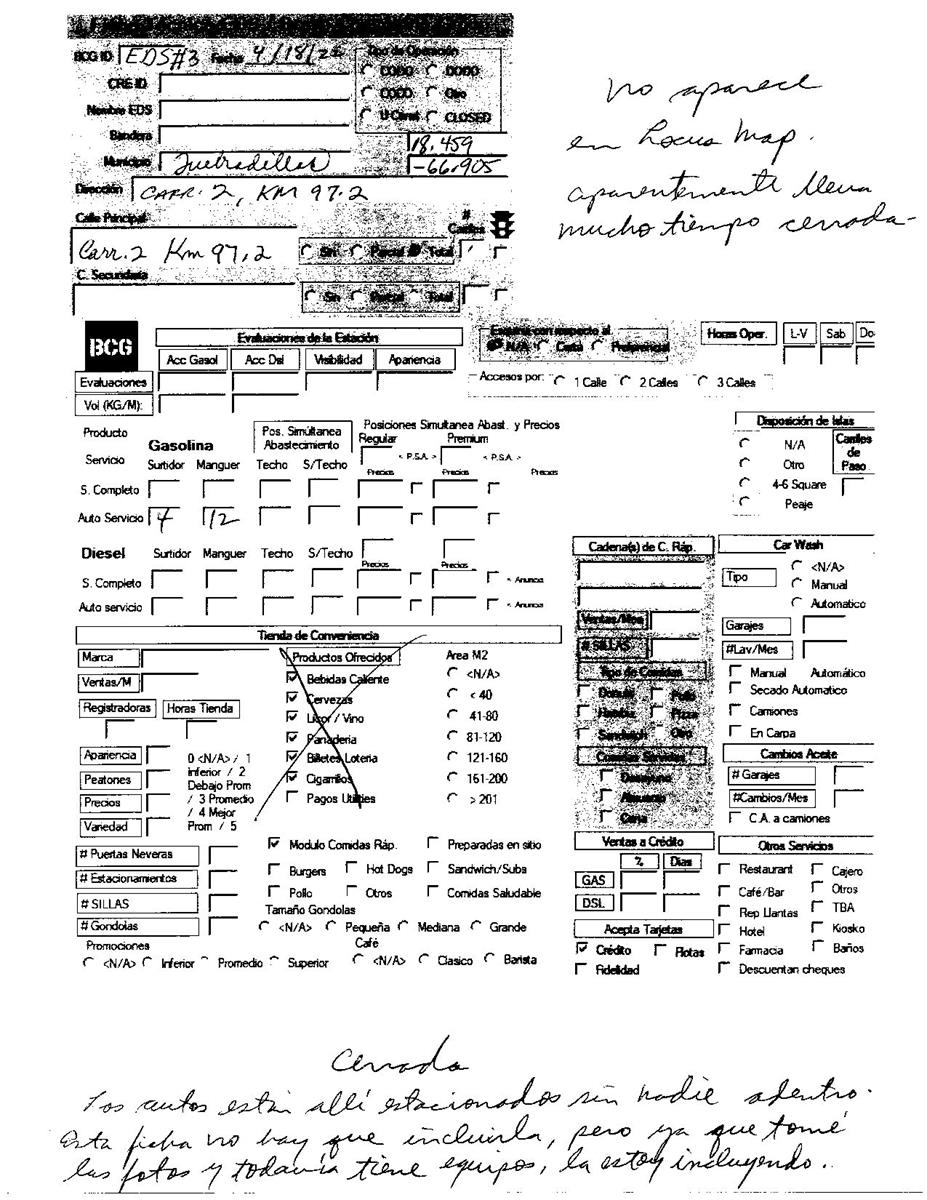 BCG ID EDS#3 Fecha 4/18/25 Tipo de Operación
CODO DODO
CRE ID
COCO Otro
Nombre EDS
CLOSED
Bandera
18.459
Municipio Quebradillas -66.905
Dirección CARR. 2, KM 97.2
Calle Principal # Carriles
Carr. 2 Km 97.2 Sin Parcial Total
C. Secundaria
Sin Parcial Total
no aparece
en Locus Map.
aparentemente lleva
mucho tiempo cerrada
BCG Evaluaciones de la Estación
Acc Gasol Acc Dsl Visibilidad Apariencia
Evaluaciones
Vol (KG/M):
Esquina con respecto al
N/A Cerca Preferencial
Horas Oper. L-V Sab Do
Accesos por: 1 Calle 2 Calles 3 Calles
Producto
Gasolina
Pos. Simultanea Abastecimiento
Posiciones Simultanea Abast. y Precios
Regular Premium
< P.S.A. > < P.S.A. >
Servicio Surtidor Manguer Techo S/Techo Precios Precios Precios
S. Completo
Auto Servicio 4 12
Disposición de Islas
N/A
Otro
4-6 Square
Peaje
Carriles de Paso
Diesel Surtidor Manguer Techo S/Techo Precios Precios
S. Completo < Anuncia
Auto servicio < Anuncia
Tienda de Conveniencia
Marca
Ventas/M
Registradoras Horas Tienda
Apariencia
Peatones
Precios
Variedad
0 <N/A> / 1
Inferior / 2
Debajo Prom
/ 3 Promedio
/ 4 Mejor
Prom / 5
Productos Ofrecidos
Bebidas Caliente
Cervezas
Licor / Vino
Panaderia
Billetes Loteria
Cigarrillos
Pagos Utilities
Area M2
<N/A>
< 40
41-80
81-120
121-160
161-200
> 201
# Puertas Neveras
# Estacionamientos
# SILLAS
# Gondolas
Modulo Comidas Ráp. Preparadas en sitio
Burgers Hot Dogs Sandwich/Subs
Pollo Otros Comidas Saludable
Tamaño Gondolas
<N/A> Pequeña Mediana Grande
Promociones Café
<N/A> Inferior Promedio Superior <N/A> Clasico Barista
Cadena(s) de C. Ráp.
Ventas/Mes
# SILLAS
Tipo de Comidas
Donuts Pollo
Pizza
Sandwich Otro
Comidas Servidas
Desayuno
Almuerzo
Cena
Ventas a Crédito
% Dias
GAS
DSL
Acepta Tarjetas
Crédito Flotas
Fidelidad
Car Wash
Tipo
<N/A>
Manual
Automatico
Garajes
#Lav/Mes
Manual Automático
Secado Automatico
Camiones
En Carpa
Cambios Aceite
# Garajes
#Cambios/Mes
C.A. a camiones
Otros Servicios
Restaurant Cajero
Café/Bar Otros
Rep Llantas TBA
Hotel Kiosko
Farmacia Baños
Descuentan cheques
Cerrada
Los autos están allí estacionados sin nadie adentro.
Esta ficha no hay que incluirla, pero ya que tomé
las fotos y todavía tiene equipos, la estoy incluyendo.